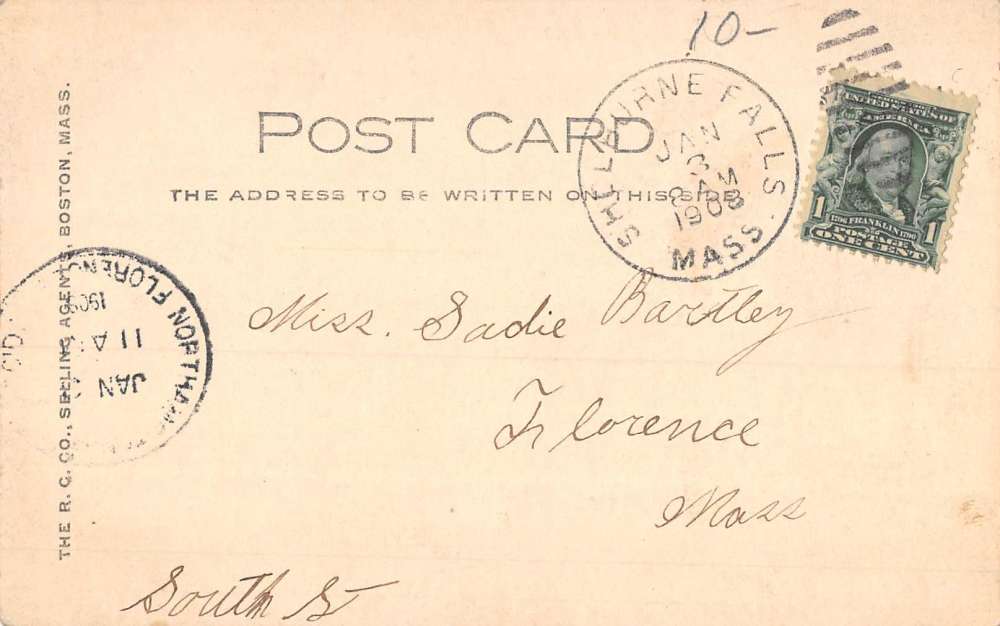 10-
POST CARD
THE ADDRESS TO BE WRITTEN ON THIS SIDE.
SHELBURNE FALLS
JAN
3
8 AM
1908
MASS.
UNITED STATES OF
AMERICA
1 1706 FRANKLIN 1790 1
POSTAGE
ONE CENT
THE R. C. CO., SELLING AGENTS, BOSTON, MASS.
NORTHAM ON FLORENC
JAN
11 A
190
C'D.
Miss. Sadie Bartley
Florence
Mass
South St